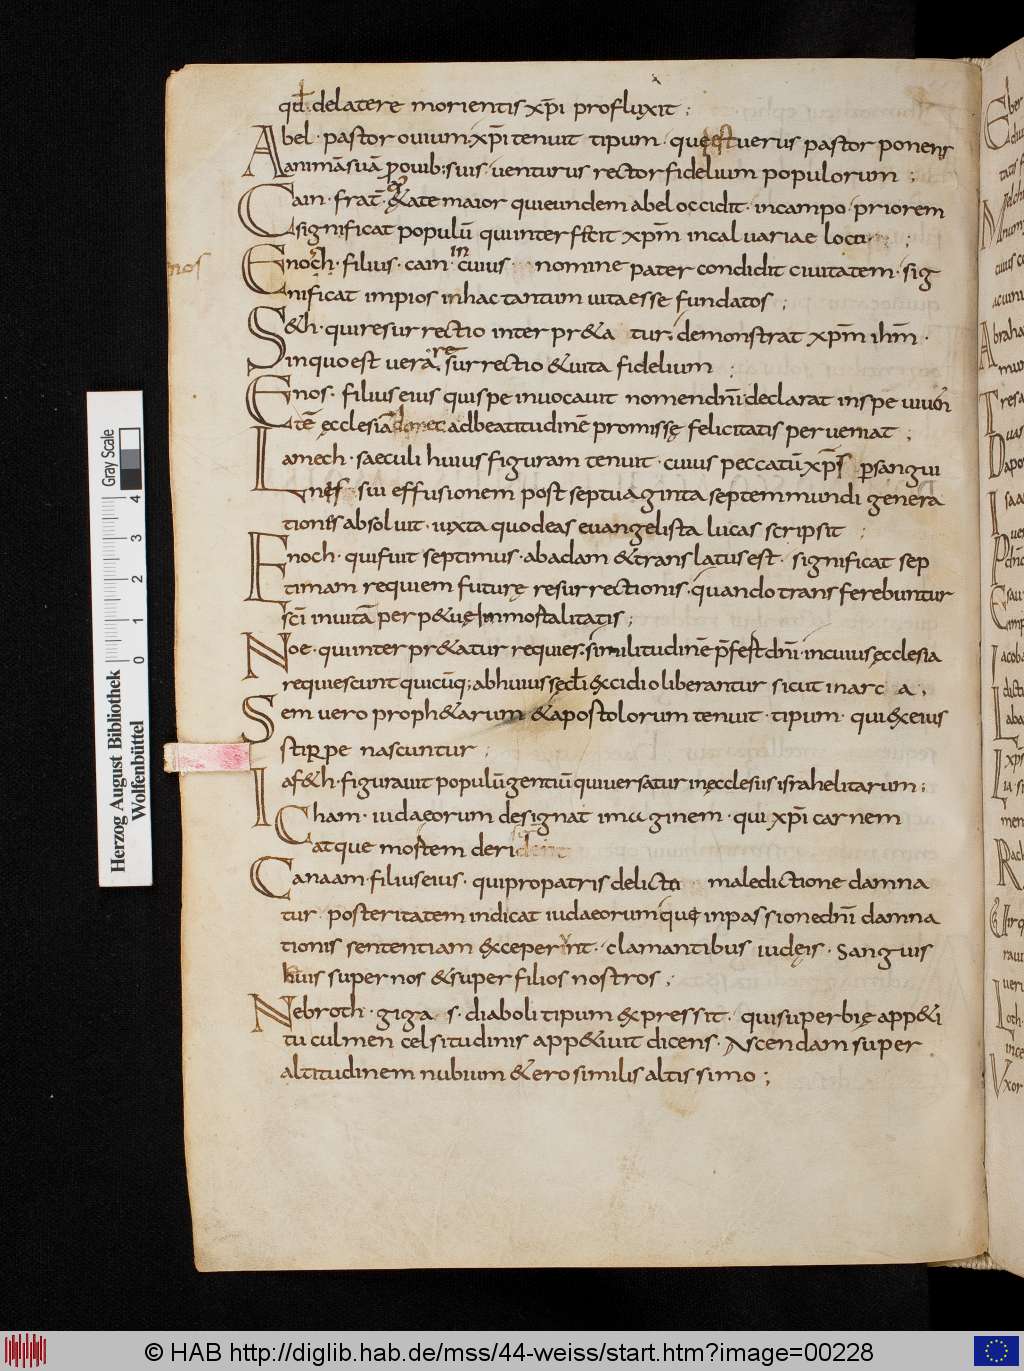 qđ delatere morientis xp̄i profluxit ;
Abel · pastor ovium · xp̄i tenuit tipum · quę est verus pastor ponens
animā suā p ouib; suis · uenturus rector fidelium populorum ;
Cain · frat̄ & ate maior qui eundem abel occidit · in campo · priorem
significat populū qui interfecit xp̄m in caluariae loco ;
Enoch · filius · cain · in cuius nomine pater condidit ciuitatem · sig
nificat impios in hac tantum uita esse fundatos ;
S&h · qui resurrectio interpr&a tur · demonstrat xp̄m ihm̄ ·
in quo est vera resurrectio & uita fidelium ;
Enos · filius eius qui spe inuocauit nomen dn̄i declarat in spe uiuen
tē ęcclesiā donec ad beatitudinē promissę felicitatis perueniat ;
Lamech · saeculi huius figuram tenuit · cuius peccatū xp̄s p sangui
nis sui effusionem post septuaginta septem mundi genera
tiones absoluit · iuxta quod eas euangelista lucas scripsit ;
Enoch · qui fuit septimus · ab adam & translatus est · significat sep
timam requiem futurę resurrectionis · quando transferebuntur
sc̄i in uitā perp&uę Inmortalitatis ;
Noe · qui interpr&atur requies · similitudinē p̄fert dn̄i · in cuius ęcclesia
requiescunt quicūq; ab huius sęcl̄i excidio liberantur sicut in arc a ;
Sem uero proph&arum & apostolorum tenuit · tipum · qui ex eius
stirpe nascuntur ;
Iaf&h · figurauit populū gentiū qui uersatur in ęcclesiis israhelitarum ;
Cham · iudaeorum designat imaginem · qui xp̄i carnem
atque mortem derident
Canaam · filius eius · qui pro patris delicto maledictione damna
tur posteritatem indicat iudaeorum quę in passione dn̄i damna
tionis sententiam exceperunt · clamantibus iudęis · Sanguis
huius super nos & super filios nostros ;
Nebroth · giga s · diaboli tipum expressit · qui superbię app&i
tu culmen celsitudinis app&iuit dicens · Ascendam super
altitudinem nubium & ero similis altissimo ;
Gray Scale
4
3
2
1
0
Herzog August Bibliothek
Wolfenbüttel
© HAB http://diglib.hab.de/mss/44-weiss/start.htm?image=00228